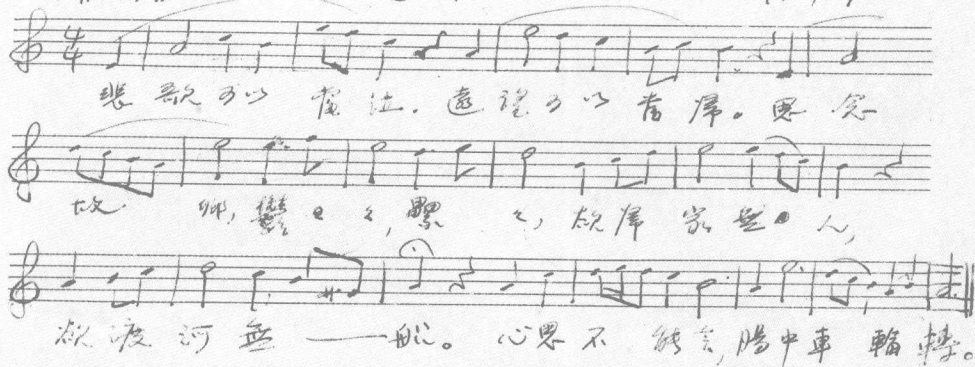 悲歌可以當泣。遠望可以當歸。思念
故鄉,鬱々,纍々,欲歸家無人,
欲渡河無——船。心思不能言,腸中車輪轉。